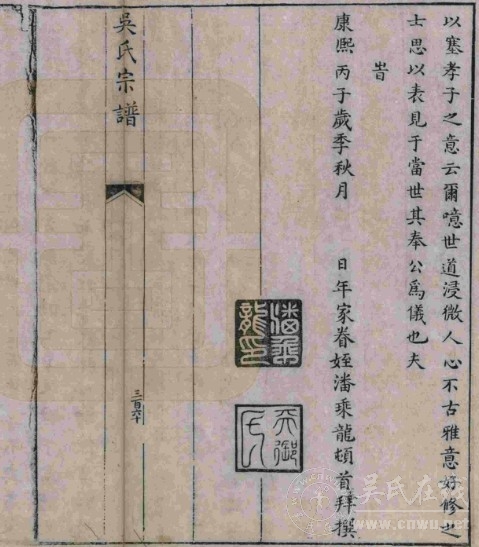 以塞孝子之意云爾噫世道浸微人心不古雅意好修之
士思以表見于當世其奉公爲儀也夫
旹
康熙丙子歲季秋月　日年家眷姪潘乘龍頓首拜撰
潘乘龍印
天御氏
吳氏宗譜
三百六十
吳氏在线
www.cnwu.net